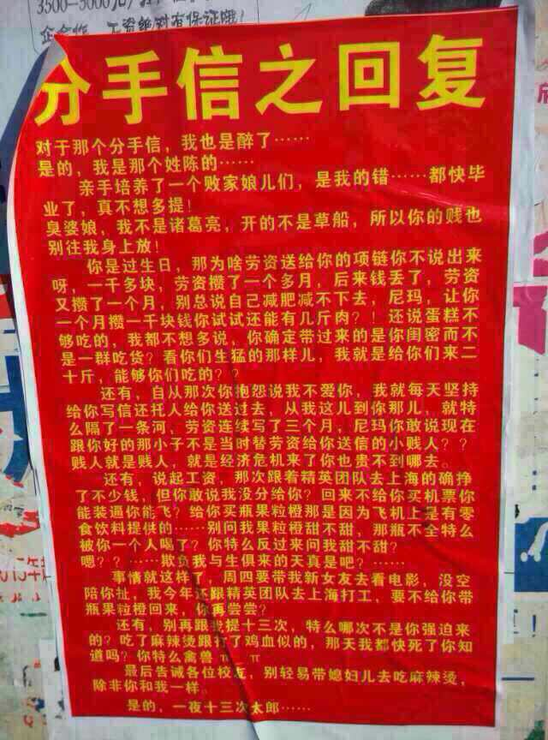 3500-5000元/
企合作，工资绝对有保证哦！
分手信之回复
对于那个分手信，我也是醉了……
是的，我是那个姓陈的……
亲手培养了一个败家娘儿们，是我的错……都快毕
业了，真不想多提！
臭婆娘，我不是诸葛亮，开的不是草船，所以你的贱也
别往我身上放！
你是过生日，那为啥劳资送给你的项链你不说出来
呀，一千多块，劳资攒了一个多月，后来钱丢了，劳资
又攒了一个月，别总说自己减肥减不下去，尼玛，让你
一个月攒一千块钱你试试还能有几斤肉？！还说蛋糕不
够吃的，我都不想多说，你确定带过来的是你闺密而不
是一群吃货？看你们生猛的那样儿，我就是给你们来二
十斤，能够你们吃的？？
还有，自从那次你抱怨说我不爱你，我就每天坚持
给你写信还托人给你送过去，从我这儿到你那儿，就特
么隔了一条河，劳资连续写了三个月，尼玛你敢说现在
跟你好的那小子不是当时替劳资给你送信的小贱人？？
贱人就是贱人，就是经济危机来了你也贵不到哪去。
还有，说起工资，那次跟着精英团队去上海的确挣
了不少钱，但你敢说我没分给你？回来不给你买机票你
能装逼你能飞？给你买瓶果粒橙那是因为飞机上是有零
食饮料提供的……别问我果粒橙甜不甜，那瓶不全特么
被你一个人喝了？你特么反过来问我甜不甜？
嗯？？……欺负我与生俱来的天真是吧？……
事情就这样了，周四要带我新女友去看电影，没空
陪你扯，我今年还跟精英团队去上海打工，要不给你带
瓶果粒橙回来，你再尝尝？
还有，别再跟我提十三次，特么哪次不是你强迫来
的？吃了麻辣烫跟打了鸡血似的，那天我都快死了你知
道吗？你特么禽兽 π_π
最后告诫各位校友，别轻易带媳妇儿去吃麻辣烫，
除非你和我一样。
是的，一夜十三次太郎……